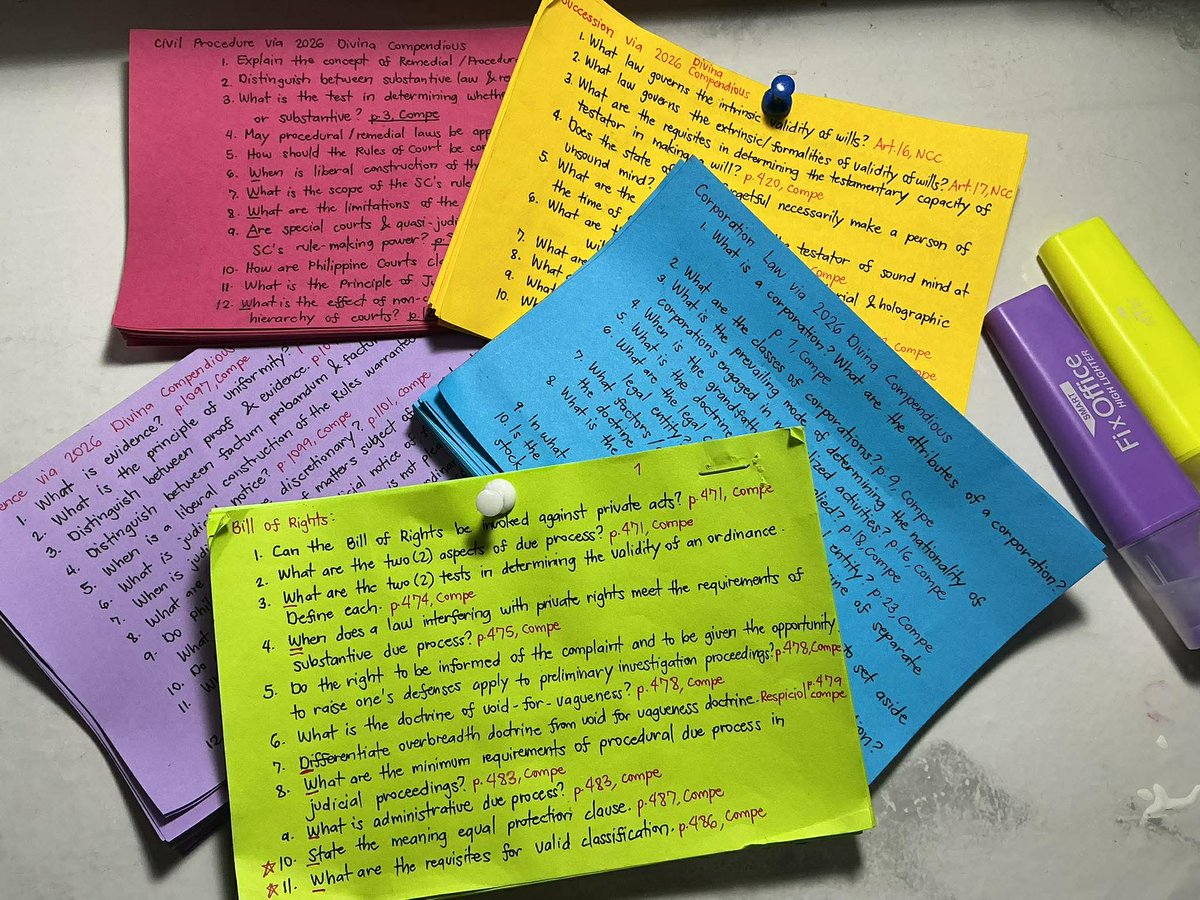 Civil Procedure via 2026 Divina Compendious
1. Explain the concept of Remedial/Procedur
2. Distinguish between substantive law & re
3. What is the test in determining whethe
or substantive? p.3, Compe
4. May procedural/remedial laws be app
5. How should the Rules of Court be con
6. When is liberal construction of the
7. What is the scope of the SC's rule
8. What are the limitations of the
9. Are special courts & quasi-judi
SC's rule-making power? p.
10. How are Philippine Courts cla
11. What is the Principle of Ju
12. What is the effect of non-c
hierarchy of courts? p.1
Succession via 2026 Divina Compendious
1. What law governs the intrinsic validity of wills? Art.16, NCC
2. What law governs the extrinsic/formalities of validity of wills? Art.17, NCC
3. What are the requisites in determining the testamentary capacity of
testator in making a will? p.420, Compe
4. Does the state of getful necessarily make a person of
unsound mind?
5. What are the testator of sound mind at
the time of Compe
6. What are th rial & holographic
wil
7. What are
8. What
9. What
10. Wh
Corporation Law via 2026 Divina Compendious
1. What is a corporation? What are the attributes of a corporation?
p.7, Compe
2. What are the classes of corporations? p.9, Compe
3. What is the prevailing mode of determining the nationality of
corporations engaged in nalized activities? p.16, Compe
4. When is the grandfath lied? p.18, Compe
5. What is the doctrin entity? p.23, Compe
6. What are the legal c ine of separate
legal entity?
7. What factors to set aside
the doctrine tion?
8. What is the
9. In what
10. Is the
stock
ence via 2026 Divina Compendious
1. What is evidence? p.1097, Compe
2. What is the principle of uniformity? p.10
3. Distinguish between proof & evidence.
4. Distinguish between factum probandum & factu
5. When is a liberal construction of the Rules warrante
6. What is judi notice? p.1099, Compe
7. When is judi discretionary? p.1101, Compe
8. What are of matters subject of
9. Do Phi dicial notice of
What
10. Do
11. Wh
12.
1
Bill of Rights:
1. Can the Bill of Rights be invoked against private acts? p.471, Compe
2. What are the two(2) aspects of due process? p.471, Compe
3. What are the two(2) tests in determining the validity of an ordinance.
Define each. p.474, Compe
4. When does a law interfering with private rights meet the requirements of
substantive due process? p.475, Compe
5. Do the right to be informed of the complaint and to be given the opportunity
to raise one's defenses apply to preliminary investigation proceedings? p.478, Compe
6. What is the doctrine of void-for-vagueness? p.478, Compe
7. Differentiate overbreadth doctrine from void for vagueness doctrine. Respicio| p.479 compe
8. What are the minimum requirements of procedural due process in
judicial proceedings? p.483, Compe
9. What is administrative due process? p.483, Compe
10. State the meaning equal protection clause. p.487, Compe
11. What are the requisites for valid classification. p.486, Compe
SMART
FixOffice
HIGH LIGHTER